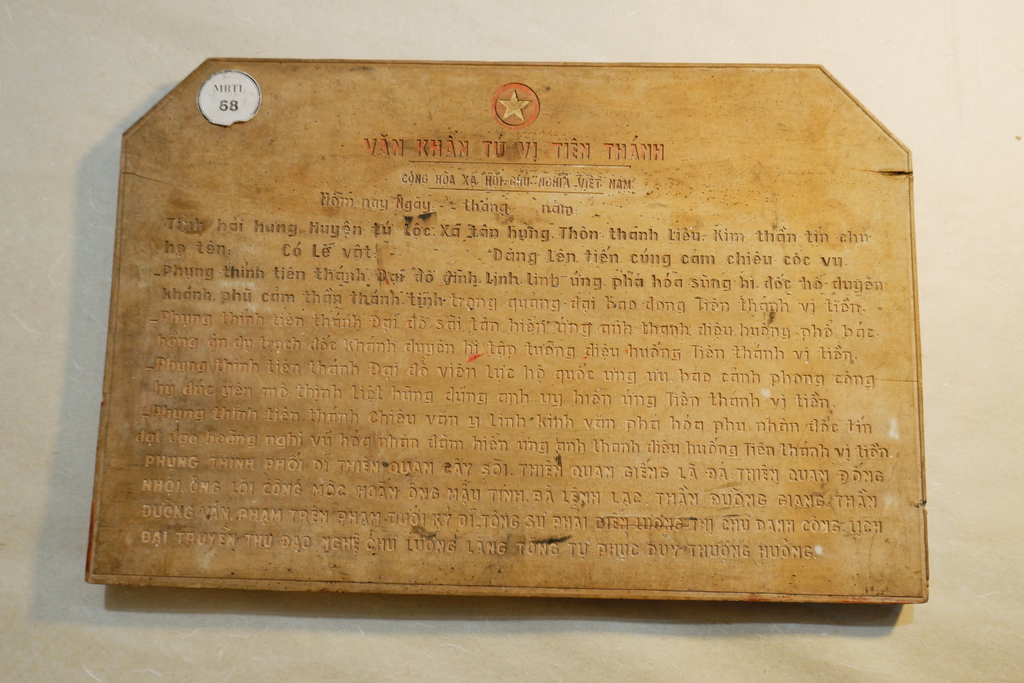 MBTL
68
VĂN KHẤN TỨ VỊ TIÊN THÁNH
CỘNG HÒA XÃ HỘI CHỦ NGHĨA VIỆT NAM
Hôm nay Ngày - - tháng năm:
Tỉnh hải hưng. Huyện tứ lôc. Xã tân hưng. Thôn thanh liễu. Kim thần tín chủ
họ tên: Có Lễ vật: Dâng lên tiến cúng cảm chiêu côc vụ.
- Phụng thỉnh tiên thánh. Đại đô đình. Linh. linh ứng. phả hóa sùng hi. đốc hổ duyên
khánh. phù cảm thần thánh tịnh trọng quảng đại bao dong Tiên thánh vị tiền.
- Phụng thỉnh tiên thánh Đại đô sái tân hiển ứng anh thanh diệu huống phổ bác
hồng ân du trạch đốc khánh duyên hi tập tường diệu huống Tiên thánh vị tiền.
- Phụng thỉnh tiên thánh Đại đô viên lực hộ quốc ứng ưu bao cảnh phong công
đức yên mô thịnh liệt hùng dũng anh uy hiển ứng Tiên thánh vị tiền.
- Phụng thỉnh tiên thánh Chiêu văn y linh kinh văn phả hóa phu nhân đốc tín
đạt đạo hoằng nghị vũ hóa nhàn đàm hiển ứng anh thanh diệu huống Tiên thánh vị tiền.
PHỤNG THỈNH PHỐI DĨ THIÊN QUAN CÂY SÔI. THIÊN QUAN GIẾNG LÃ ĐÁ THIÊN QUAN ĐỐNG
NHỘI. ÔNG LÔI CÔNG MỘC HOÀN ÔNG MẪU TINH. BÀ LỆNH LẠC. THẦN ĐƯỜNG GIANG. THẦN
ĐƯỜNG VĂN. PHẠM TRÊN PHẠM DƯỚI KỲ DĨ. TÔNG SƯ PHÁI DIỄN LƯƠNG THỊ CHƯ DANH CÔNG. LỊCH
ĐẠI TRUYỀN THỤ ĐẠO NGHỆ CHU LƯƠNG LÀNG TÔNG TỰ PHỤC DUY THƯỢNG HƯỞNG.